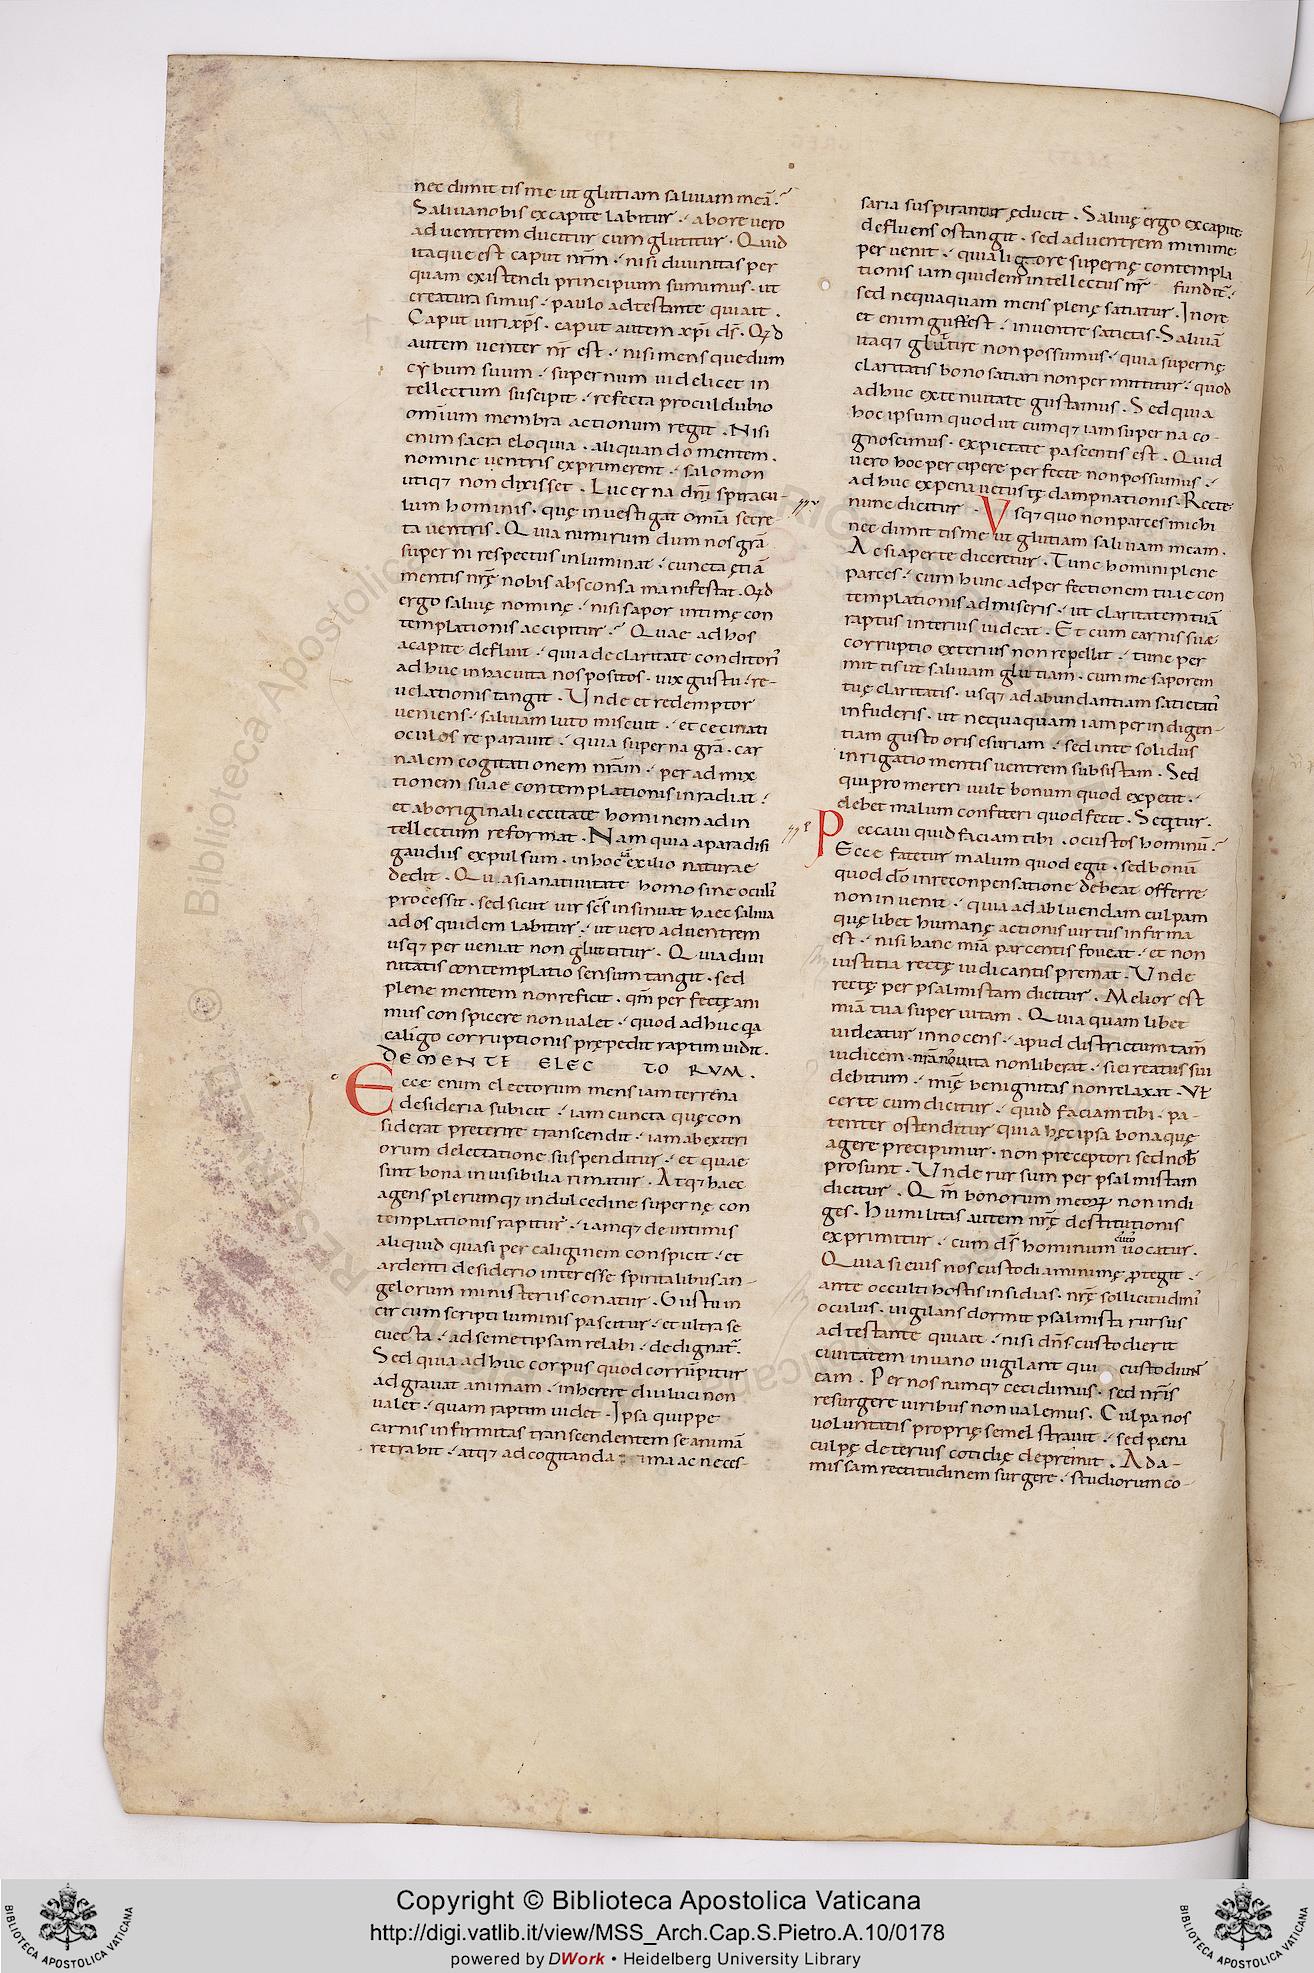 nec dimittis me ut glutiam salivam meā.
Saliva nobis ex capite labitur. ab ore vero
ad ventrem ducitur cum glutitur. Quid
itaque est caput nrm̄. nisi divinitas per
quam existendi principium sumimus. ut
creatura simus. paulo adtestante qui ait.
Caput viri xp̄s. caput autem xp̄i ds̄. Qd
autem venter nr̄ est. nisi mens que dum
cybum suum. supernum videlicet in
tellectum suscipit. refecta procul dubio
omīum membra actionum regit. Nisi
enim sacra eloquia. aliquando mentem.
nomine ventris exprimerent. salomon
utiq; non dixisset. Lucerna dn̄i spiracu-
lum hominis. quę investigat omīa secre-
ta ventris. Quia nimirum dum nos grā
superni respectus inluminat. cuncta ętiā
mentis nrę̄ nobis absconsa manifestat. Qd
ergo salivę nominę. nisi sapor intimę con
templationis accipitur. Quae ad hos
a capite defluit. quia de claritate conditori
adhuc in hac vita nos positos. vix gustu re-
velationis tangit. Unde et redemptor
veniens. salivam luto miscuit. et ceci nati
oculos reparavit. quia superna grā. car
nalem cogitationem nrām. per admix
tionem suae contemplationis inradiat.
et ab originali cecitate hominem ad in
tellectum reformat. Nam quia a paradisi
gaudiis expulsum. in hoc exilio naturae
dedit. Quasi a nativitate homo sine oculi
processit. sed sicut vir scs̄ insinuat haec saliva
ad os quidem labitur. ut vero ad ventrem
usq; perveniat non glutitur. Quia divi
nitatis contemplatio sensum tangit. sed
plene mentem non reficit. qm̄ perfectę ani
mus conspicere non valet. quod adhuc qa
caligo corruptionis prępedit raptim vidit.
DE MENTE ELECTORUM.
Ecce enim electorum mens iam terrena
desideria subicit. iam cuncta quę con
siderat preterire transcendit. iam ab exteri
orum delectatione suspenditur. et quae
sint bona invisibilia rimatur. Atq; haec
agens plerumq; in dulcedine supernę con
templationis rapitur. iamq; de intimis
aliquid quasi per caliginem conspicit. et
ardenti desiderio interesse spiritalibus an-
gelorum ministeriis conatur. Gustu in
circumscripti luminis pascitur. et ultra se
evecta. ad semetipsam relabi. dedignat.
Sed quia adhuc corpus quod corrūpitur
adgravat animam. inherere diu luci non
valet. quam raptim videt. Ipsa quippe
carnis infirmitas transcendentem se animā
retrahit. atq; ad cogitanda ima ac neces-
saria suspirantur ęducit. Salivę ergo ex capite
defluens os tangit. sed ad ventrem minime
pervenit. quia liquore supernę contempla
tionis iam quidem intellectus nr̄ fundit.
sed nequaquam mens plenę satiatur. In ore
et enim gustus est. in ventre satietas. Salivā
itaq; glutire non possumus. quia supernę
claritatis bono satiari non permittitur. quod
adhuc ex tenuitate gustamus. Sed quia
hoc ipsum quod ut cumq; iam superna co-
gnoscimus. ex pietate pascentis est. Quid
vero hoc percipere perfecte non possumus.
adhuc ex pena vetustę dampnationis. Recte
nunc dicitur. Usq; quo non parces michi
nec dimittis me ut glutiam salivam meam.
Ac si aperte diceretur. Tunc homini plene
parces. cum hunc ad perfectionem tuae con
templationis admiseris. ut claritatem tuā
raptus interius videat. Et cum carnis suae
corruptio exterius non repellit. tunc per
mittis ut salivam glutiam. cum me saporem
tuę claritatis. usq; ad abundantiam satietati
infuderis. ut nequaquam iam per indigen-
tiam gusto oris esuriam. sed in te solidus
inrigatio mentis ventrem subsistam. Sed
qui promereri vult bonum quod expetit.
debet malum confiteri quod fecit. Seqitur.
Peccavi quid faciam tibi. o custos hominū.
Ecce fatetur malum quod egit. sed bonū
quod dō in reconpensatione debeat offerre
non invenit. quia ad abluendam culpam
quę libet humanę actionis virtus infirma
est. nisi hanc mīa parcentis foveat. et non
iustitia rectę iudicantis premat. Unde
rectę per psalmistam dicitur. Melior est
mīa tua super vitam. Quia quam libet
videatur innocens. apud districtum tam̄
iudicem nrā nos vita non liberat. si ei reatus sui
debitum. mīę benignitas non relaxat. Vł
certe cum dicitur. quid faciam tibi. pa-
tenter ostenditur quia hęc ipsa bona quę
agere precipimur. non preceptori sed nob̄
prosunt. Unde rursum per psalmistam
dicitur. Qm̄ bonorum meoꝝ non indi
ges. Humilitas autem nrę̄ destitutionis
exprimitur. cum ds̄ hominum custos vocatur.
Quia si eius nos custodia minimę ꝓtegit.
ante occulti hostis insidias. nrę̄ sollicitudini
oculus. vigilans dormit psalmista rursus
adtestante qui ait. nisi dn̄s custodierit
civitatem in vano vigilant qui custodiunt
eam. Per nos namq; cecidimus. sed nrīs
resurgere viribus non valemus. Culpa nos
voluntatis proprię semel stravit. sed pena
culpę deterius cotidię deprimit. Ad a-
missam rectitudinem surgere. studiorum co-
Copyright © Biblioteca Apostolica Vaticana
http://digi.vatlib.it/view/MSS_Arch.Cap.S.Pietro.A.10/0178
powered by DWork • Heidelberg University Library
BIBLIOTECA APOSTOLICA VATICANA
BIBLIOTECA APOSTOLICA VATICANA